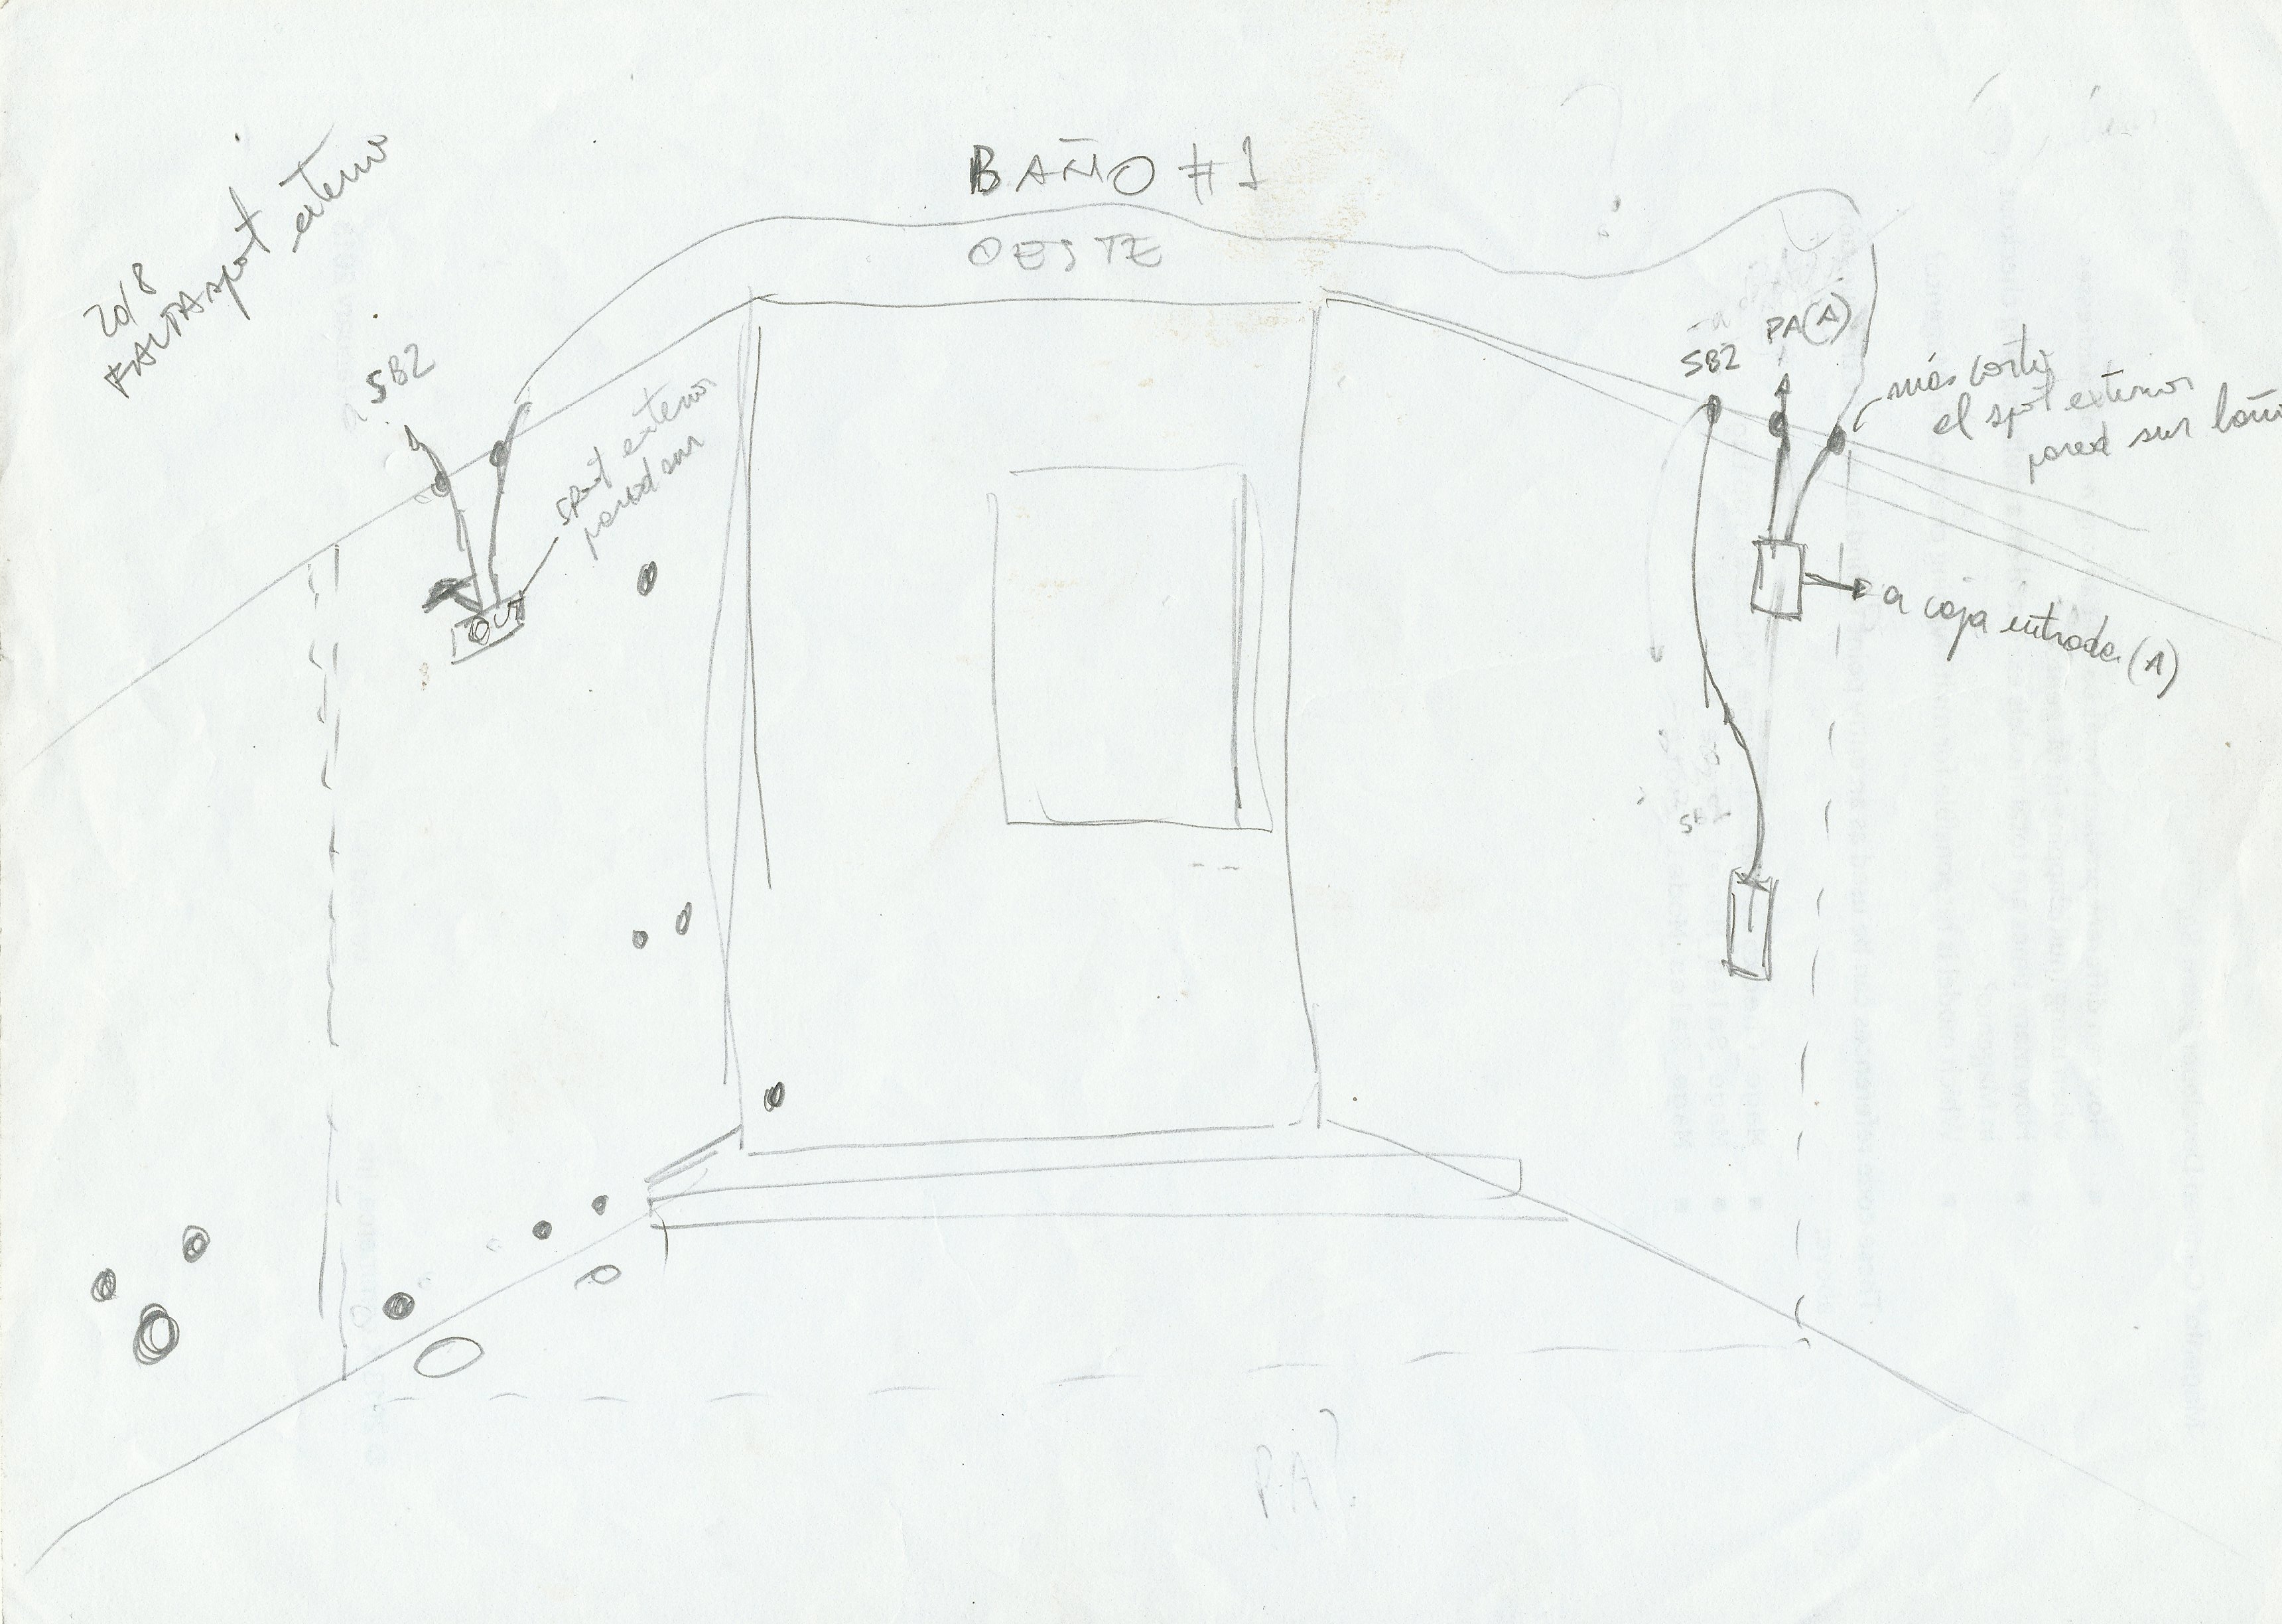 BAÑO #1
OESTE
20/8
FALTA spot externo
a SB2
spot externo
pared sur
OUT
SB2
PA(A)
más corto
el spot externo
pared sur baño
a caja entrada (A)
SB2
P.A?